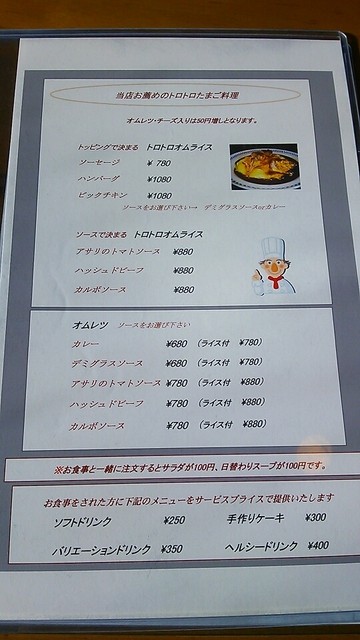 当店お薦めのトロトロたまご料理
オムレツ・チーズ入りは50円増しとなります。
トッピングで決まる　トロトロオムライス
ソーセージ　¥ 780
ハンバーグ　¥1080
ビックチキン　¥1080
ソースをお選び下さい→　デミグラスソースorカレー
ソースで決まる　トロトロオムライス
アサリのトマトソース　¥880
ハッシュドビーフ　¥880
カルボソース　¥880
オムレツ　ソースをお選び下さい
カレー　¥680　(ライス付　¥780)
デミグラスソース　¥680　(ライス付　¥780)
アサリのトマトソース　¥780　(ライス付　¥880)
ハッシュドビーフ　¥780　(ライス付　¥880)
カルボソース　¥780　(ライス付　¥880)
※お食事と一緒に注文するとサラダが100円、日替わりスープが100円です。
お食事をされた方に下記のメニューをサービスプライスで提供いたします
ソフトドリンク　¥250　手作りケーキ　¥300
バリエーションドリンク　¥350　ヘルシードリンク　¥400